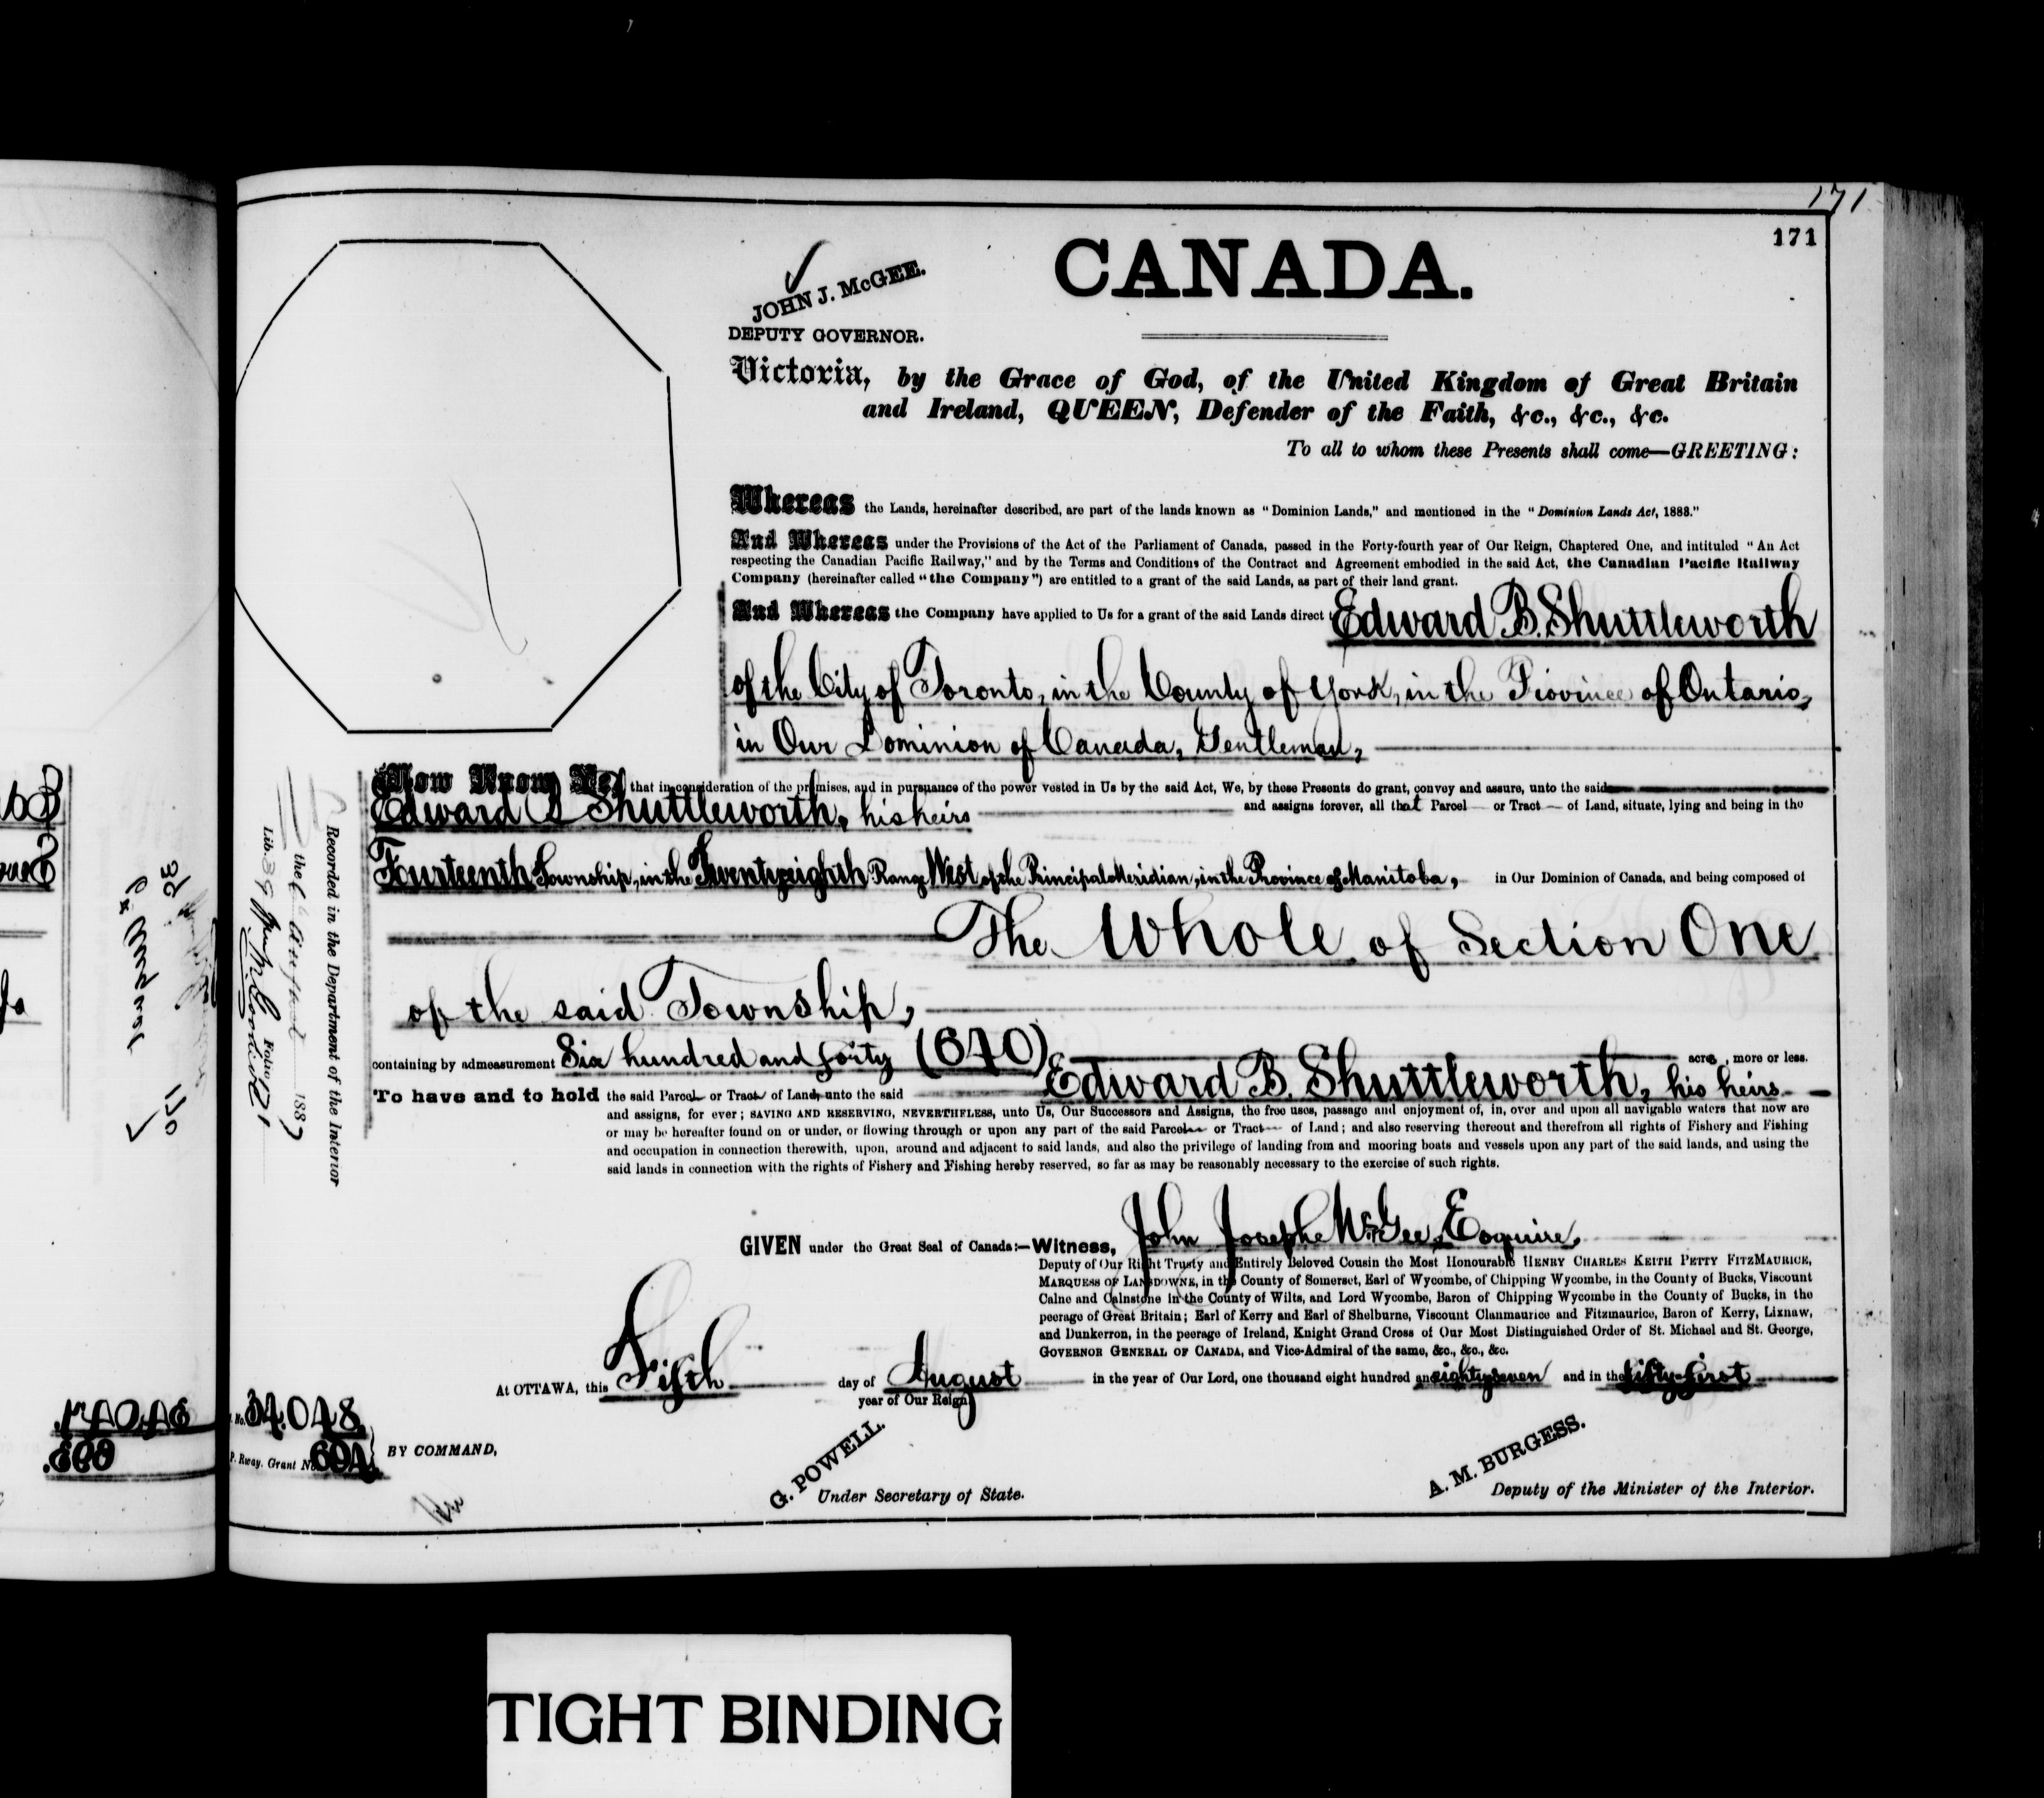 171
171
CANADA.
JOHN J. McGEE.
DEPUTY GOVERNOR.
Victoria, by the Grace of God, of the United Kingdom of Great Britain
and Ireland, QUEEN, Defender of the Faith, &c., &c., &c.
To all to whom these Presents shall come—GREETING:
Whereas the Lands, hereinafter described, are part of the lands known as "Dominion Lands," and mentioned in the "Dominion Lands Act, 1883."
And Whereas under the Provisions of the Act of the Parliament of Canada, passed in the Forty-fourth year of Our Reign, Chaptered One, and intituled "An Act
respecting the Canadian Pacific Railway," and by the Terms and Conditions of the Contract and Agreement embodied in the said Act, the Canadian Pacific Railway
Company (hereinafter called "the Company") are entitled to a grant of the said Lands, as part of their land grant.
And Whereas the Company have applied to Us for a grant of the said Lands direct Edward B. Shuttleworth
of the City of Toronto, in the County of York, in the Province of Ontario,
in Our Dominion of Canada, Gentleman,
Now Know Ye, that in consideration of the premises, and in pursuance of the power vested in Us by the said Act, We, by these Presents do grant, convey and assure, unto the said
Edward B Shuttleworth, his heirs and assigns forever, all that Parcel or Tract of Land, situate, lying and being in the
Fourteenth Township, in the Twenty eighth Range West of the Principal Meridian, in the Province of Manitoba, in Our Dominion of Canada, and being composed of
The Whole of Section One
of the said Township,
containing by admeasurement Six hundred and forty (640) acres, more or less.
To have and to hold the said Parcel or Tract of Land, unto the said Edward B. Shuttleworth, his heirs
and assigns, for ever; SAVING AND RESERVING, NEVERTHELESS, unto Us, Our Successors and Assigns, the free uses, passage and enjoyment of, in, over and upon all navigable waters that now are
or may be hereafter found on or under, or flowing through or upon any part of the said Parcel or Tract of Land; and also reserving thereout and therefrom all rights of Fishery and Fishing
and occupation in connection therewith, upon, around and adjacent to said lands, and also the privilege of landing from and mooring boats and vessels upon any part of the said lands, and using the
said lands in connection with the rights of Fishery and Fishing hereby reserved, so far as may be reasonably necessary to the exercise of such rights.
GIVEN under the Great Seal of Canada:—Witness, John Joseph McGee, Esquire,
Deputy of Our Right Trusty and Entirely Beloved Cousin the Most Honourable HENRY CHARLES KEITH PETTY FITZMAURICE,
MARQUESS OF LANSDOWNE, in the County of Somerset, Earl of Wycombe, of Chipping Wycombe, in the County of Bucks, Viscount
Calne and Calnstone in the County of Wilts, and Lord Wycombe, Baron of Chipping Wycombe in the County of Bucks, in the
peerage of Great Britain; Earl of Kerry and Earl of Shelburne, Viscount Clanmaurice and Fitzmaurice, Baron of Kerry, Lixnaw,
and Dunkerron, in the peerage of Ireland, Knight Grand Cross of Our Most Distinguished Order of St. Michael and St. George,
GOVERNOR GENERAL OF CANADA, and Vice-Admiral of the same, &c., &c., &c.
At OTTAWA, this Fifth day of August in the year of Our Lord, one thousand eight hundred and eighty seven and in the fifty-first
year of Our Reign
34.048
P. Rway. Grant No. 604
BY COMMAND,
G. POWELL.
Under Secretary of State.
A. M. BURGESS.
Deputy of the Minister of the Interior.
Recorded in the Department of the Interior
the 1887
Lib. 39 Folio 171
TIGHT BINDING